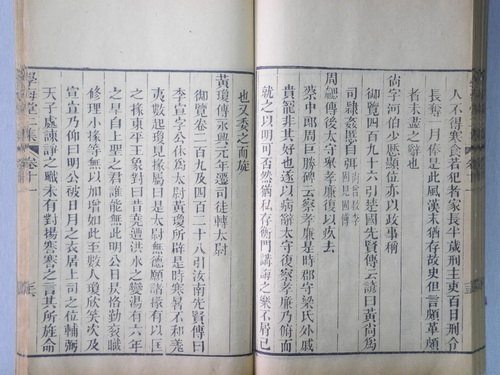 人不得寒食若犯者家長半歲刑主吏百日刑令
長奪一月俸是此風漢末猶存故史但言頗革頗
者未盡之辭也
尚字河伯少歷顯位亦以政事稱
御覽四百九十六引楚國先賢傳云諺曰黃尚為
司隸姦慝自弭
周
後太守舉孝廉復以疾去
蔡中郎周巨勝碑云察孝廉是時郡守梁氏外戚
貴寵非其好也遂以病辭太守復察孝廉乃俯而
就之以明可否然猶私存衡門講誨之樂不屑已
也又委之而旋
黃瓊傳永興元年遷司徒轉太尉
御覽卷二百九及四百二十八引汝南先賢傳曰
李宣字公休為太尉黃瓊所辟是時寒暑不和羌
夷數起瓊見掾屬曰是太尉無德願諸掾有以匡
之掾東平王象對曰昔堯遭洪水之變湯有六年
之旱自上聖之君誰能無此明公日昃恪勤袞職
修理小掾等無以加增如此至數人瓊欣笑次及
宣宣乃仰曰明公被日月之衣居上司之位輔弼
天子處諫諍之職未有對揚謇謇之言其所旌命
學海堂二集
卷十一